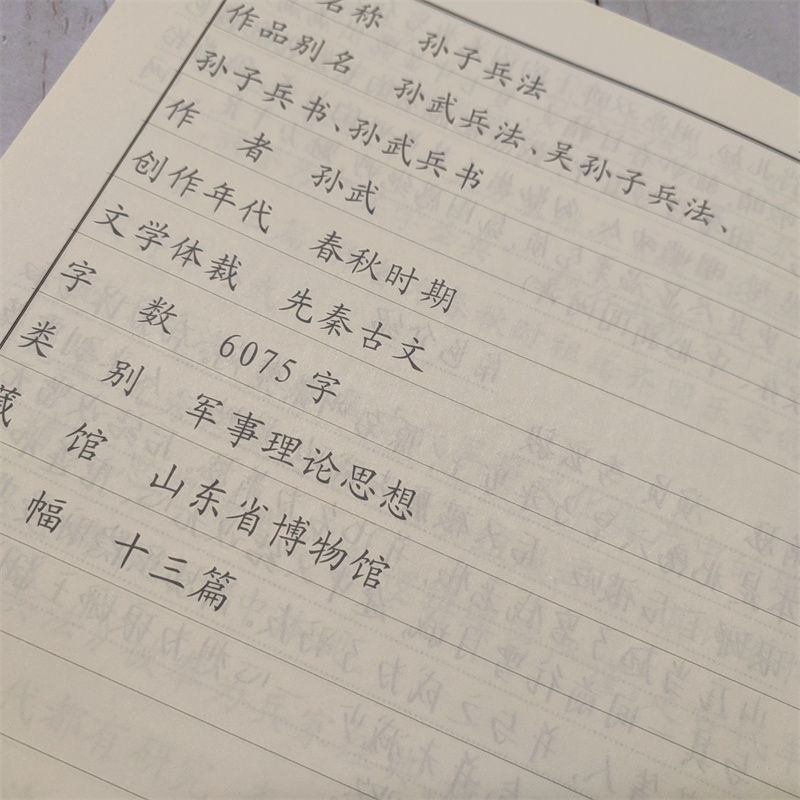 名称 孙子兵法
作品别名 孙武兵法、吴孙子兵法、
孙子兵书、孙武兵书
作 者 孙武
创作年代 春秋时期
文学体裁 先秦古文
字 数 6075字
类 别 军事理论思想
藏 馆 山东省博物馆
幅 十三篇